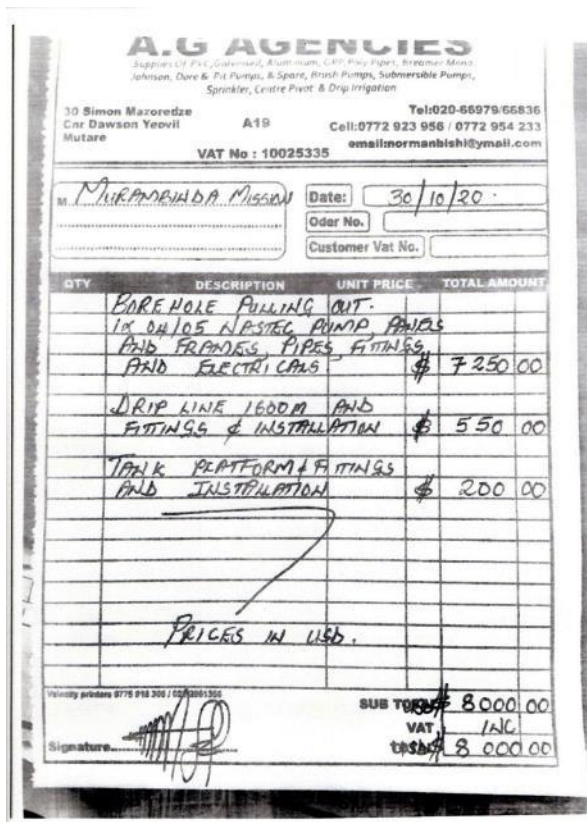 A.G AGENCIES
Supplies Of PVC, Galvanised, Aluminium, GRP, Poly Pipes, Breamer Mono
Johnson, Dore & Pit Pumps, & Spare, Brush Pumps, Submersible Pumps,
Sprinkler, Centre Pivot & Drip Irrigation
30 Simon Mazoredze Tel:020-66979/66836
Cnr Dawson Yeovil A19 Cell:0772 923 956 / 0772 954 233
Mutare email:normanbishi@ymail.com
VAT No : 10025335
M MURAMBINDA MISSION Date: 30/10/20.
Oder No.
Customer Vat No.
QTY DESCRIPTION UNIT PRICE TOTAL AMOUNT
BOREHOLE PULLING OUT.
1x 04/05 NASTEC PUMP, PANELS
AND FRAMES, PIPES, FITTINGS
AND ELECTRICALS $ 7 250 00
DRIP LINE 1600M AND
FITTINGS & INSTALLATION $ 550 00
TANK PLATFORM & FITTINGS
AND INSTALLATION $ 200 00
PRICES IN USD.
Velocity printers 0775 918 300 /
SUB TOTAL $ 8 000 00
VAT INC
Signature USD $ 8 000 00